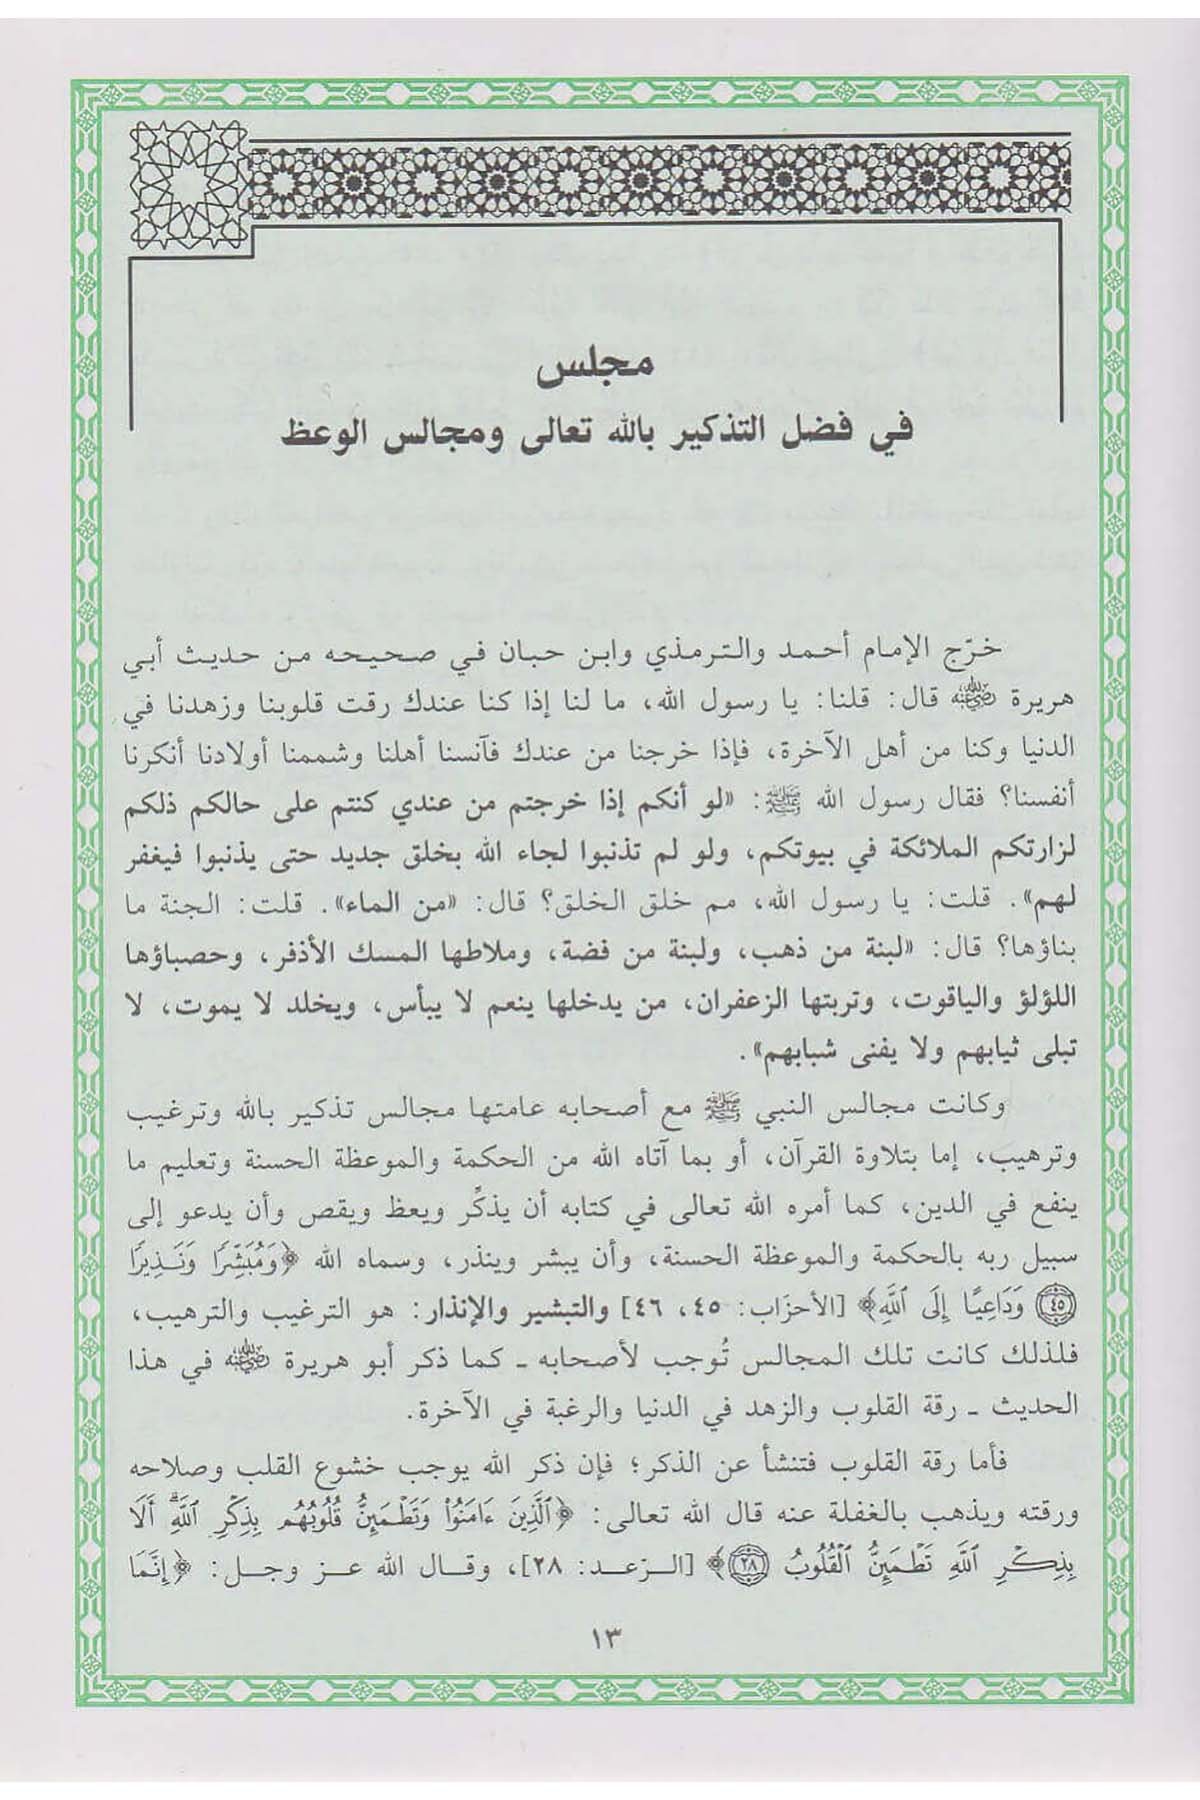 مجلس
في فضل التذكير بالله تعالى ومجالس الوعظ
خرّج الإمام أحمد والترمذي وابن حبان في صحيحه من حديث أبي
هريرة رضي الله عنه قال: قلنا: يا رسول الله، ما لنا إذا كنا عندك رقت قلوبنا وزهدنا في
الدنيا وكنا من أهل الآخرة، فإذا خرجنا من عندك فآنسنا أهلنا وشممنا أولادنا أنكرنا
أنفسنا؟ فقال رسول الله ﷺ: «لو أنكم إذا خرجتم من عندي كنتم على حالكم ذلكم
لزارتكم الملائكة في بيوتكم، ولو لم تذنبوا لجاء الله بخلق جديد حتى يذنبوا فيغفر
لهم». قلت: يا رسول الله، مم خلق الخلق؟ قال: «من الماء». قلت: الجنة ما
بناؤها؟ قال: «لبنة من ذهب، ولبنة من فضة، وملاطها المسك الأذفر، وحصباؤها
اللؤلؤ والياقوت، وتربتها الزعفران، من يدخلها ينعم لا يبأس، ويخلد لا يموت، لا
تبلى ثيابهم ولا يفنى شبابهم».
وكانت مجالس النبي ﷺ مع أصحابه عامتها مجالس تذكير بالله وترغيب
وترهيب، إما بتلاوة القرآن، أو بما آتاه الله من الحكمة والموعظة الحسنة وتعليم ما
ينفع في الدين، كما أمره الله تعالى في كتابه أن يذكِّر ويعظ ويقص وأن يدعو إلى
سبيل ربه بالحكمة والموعظة الحسنة، وأن يبشر وينذر، وسماه الله ﴿وَمُبَشِّرًا وَنَذِيرًا
٤٥ وَدَاعِيًا إِلَى ٱللَّهِ﴾ [الأحزَاب: ٤٥، ٤٦] والتبشير والإنذار: هو الترغيب والترهيب،
فلذلك كانت تلك المجالس تُوجب لأصحابه ـ كما ذكر أبو هريرة رضي الله عنه في هذا
الحديث ـ رقة القلوب والزهد في الدنيا والرغبة في الآخرة.
فأما رقة القلوب فتنشأ عن الذكر؛ فإن ذكر الله يوجب خشوع القلب وصلاحه
ورقته ويذهب بالغفلة عنه قال الله تعالى: ﴿ٱلَّذِينَ ءَامَنُوا۟ وَتَطْمَئِنُّ قُلُوبُهُم بِذِكْرِ ٱللَّهِۗ أَلَا
بِذِكْرِ ٱللَّهِ تَطْمَئِنُّ ٱلْقُلُوبُ ٢٨﴾ [الرّعد: ٢٨]، وقال الله عز وجل: ﴿إِنَّمَا
١٣